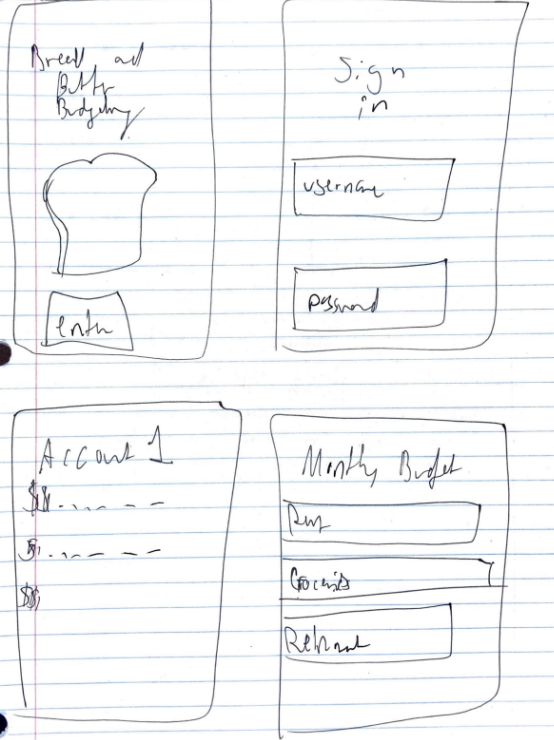 Bread and
Butter
Budgeting
enter
Sign
in
username
password
Account 1
$$
$
$$
Monthly Budget
Rent
Groceries